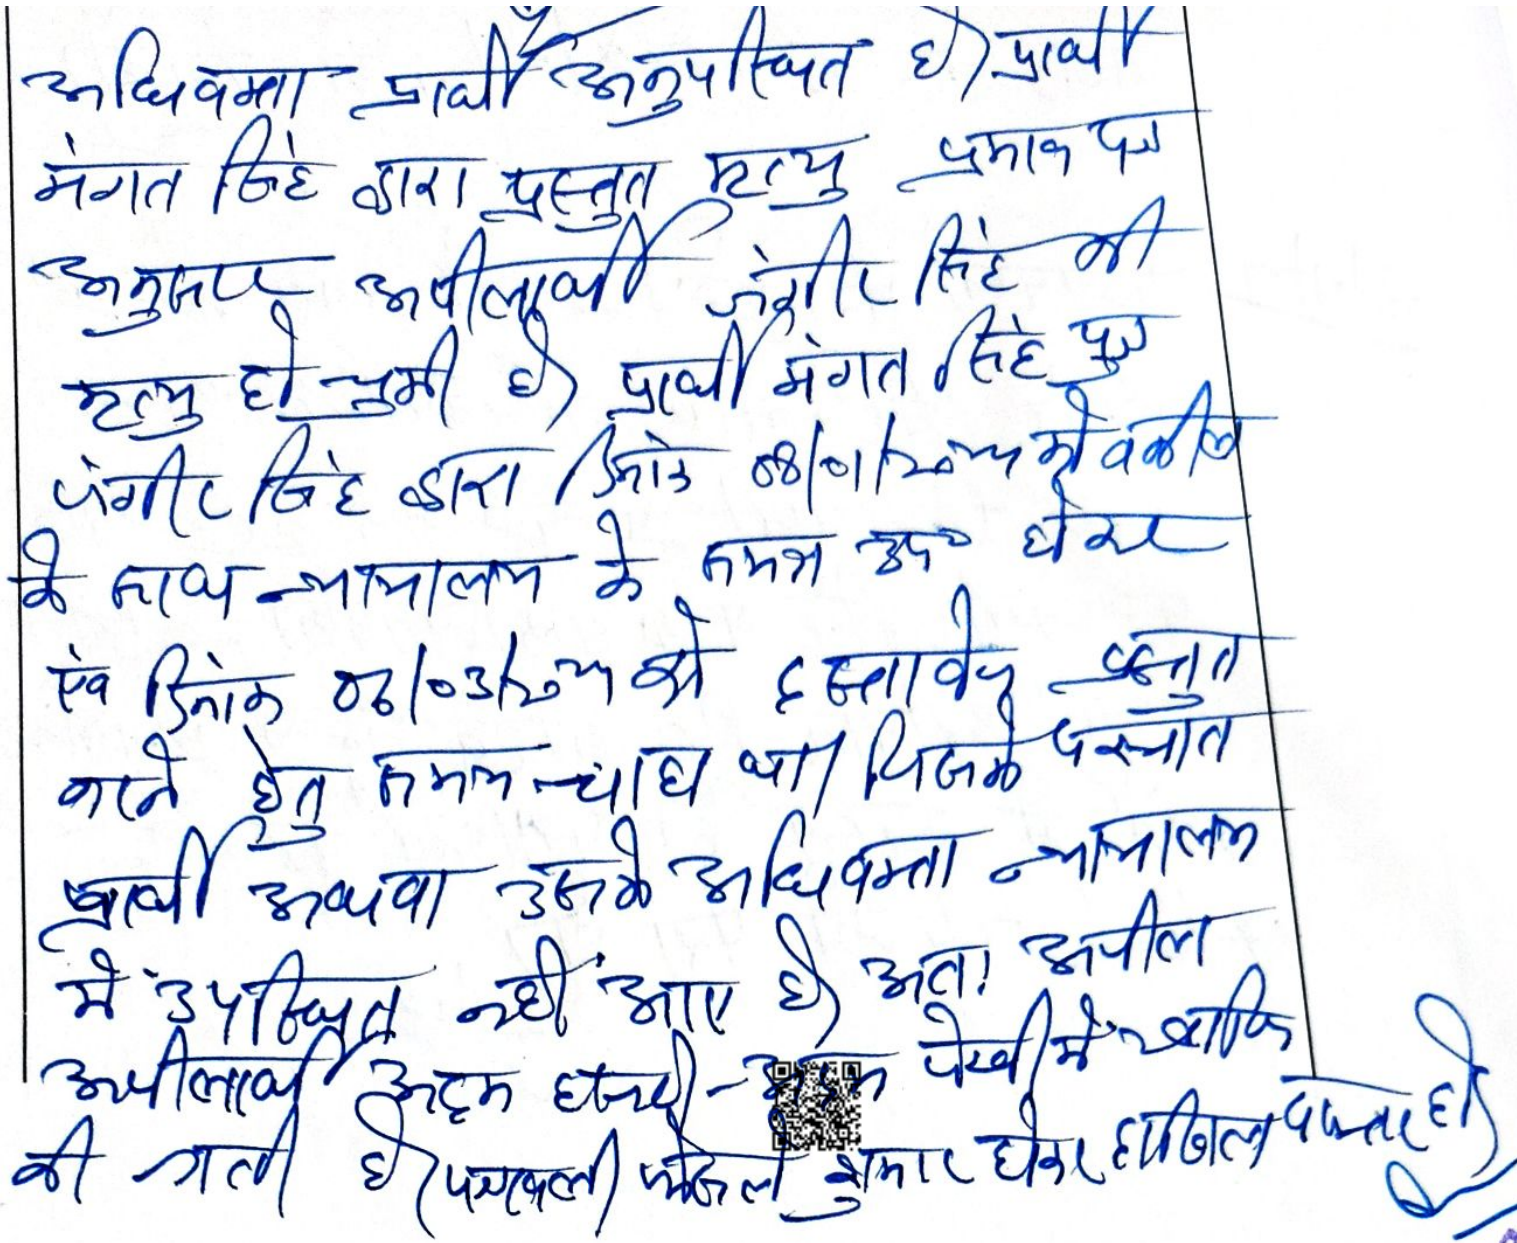 अधिवक्ता प्रार्थी अनुपस्थित है। प्रार्थी
मंगत सिंह द्वारा प्रस्तुत मृत्यु प्रमाण पत्र
अनुसार अपीलार्थी जंगीर सिंह की
मृत्यु हो चुकी है। प्रार्थी मंगत सिंह पुत्र
जंगीर सिंह द्वारा दिनांक को वकील
के साथ न्यायालय के समक्ष उप० होकर
एंव दिनांक को दस्तावेज प्रस्तुत
करने हेतु समय चाहा था। जिसके पश्चात
प्रार्थी अथवा उसके अधिवक्ता न्यायालय
में उपस्थित नहीं आए है। अतः अपील
अपीलार्थी अदम हाजरी-अदम पेरवी में खारिज
की जाती है। पत्रावली फैसल शुमार होकर दाखिल दफ्तर हो।